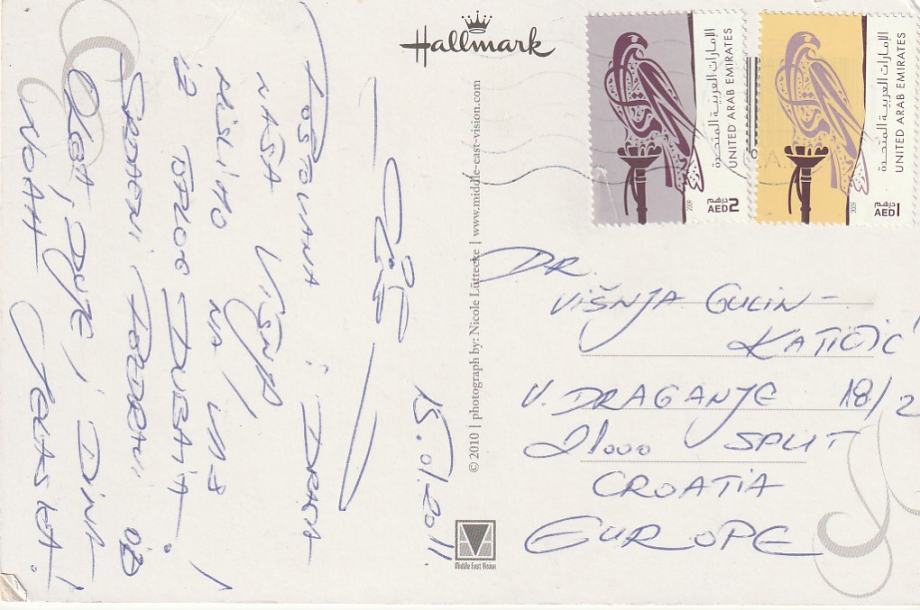 Hallmark
الإمارات العربية المتحدة
UNITED ARAB EMIRATES
درهم
AED2
2009
الإمارات العربية المتحدة
UNITED ARAB EMIRATES
درهم
AED1
2009
15.01.2011.
POŠTOVANA I DRAGA
NAŠA VIŠNJA,
MISLIMO NA VAS
IZ TOPLOG DUBAIJA.
SRDAČNI POZDRAVI OD
OLGA, DUJE, DINA
NOAH
© 2010 | photograph by: Nicole Lüttecke | www.middle-east-vision.com
Middle East Vision
DR.
VIŠNJA GULIN-
KATIČIĆ
V. DRAGANJE 18/2
21000 SPLIT
CROATIA
EUROPE